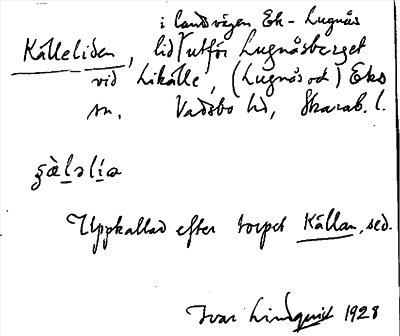 i landsvägen Ek - Lugnås
Källeliden, lid utför Lugnåsberget
vid Likälle, (Lugnås och) Eks
sn. Vadsbo hd, Skarab. l.
Uppkallad efter torpet Källan, sed.
Ivar Lindquist 1928